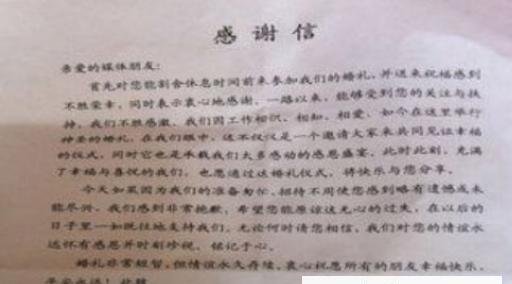 感谢信
亲爱的媒体朋友：
首先对您能割舍休息时间前来参加我们的婚礼，并送来祝福感到
不胜荣幸，同时表示衷心地感谢。一路以来，能够受到您的关注与扶
持，我们不胜感激。我们因工作相识、相知、相爱，如今在这里举行
神圣的婚礼，在我们眼中，这不仅仅是一个邀请大家来共同见证幸福
的仪式，同时它也是承载我们太多感动的感恩盛宴。此时此刻，充满
了幸福与喜悦的我们，也愿通过这婚礼仪式，将快乐与您分享。
今天如果因为我们的准备匆忙、招待不周使您感到略有遗憾或未
能尽兴，我们感到非常抱歉，希望您能原谅这无心的过失，在以后的
日子里一如既往地支持我们，无论何时请您相信，我们对您的情谊永
远怀有感恩并时刻珍视、铭记于心。
婚礼非常短暂，但情谊永久存续，衷心祝愿所有的朋友幸福快乐、